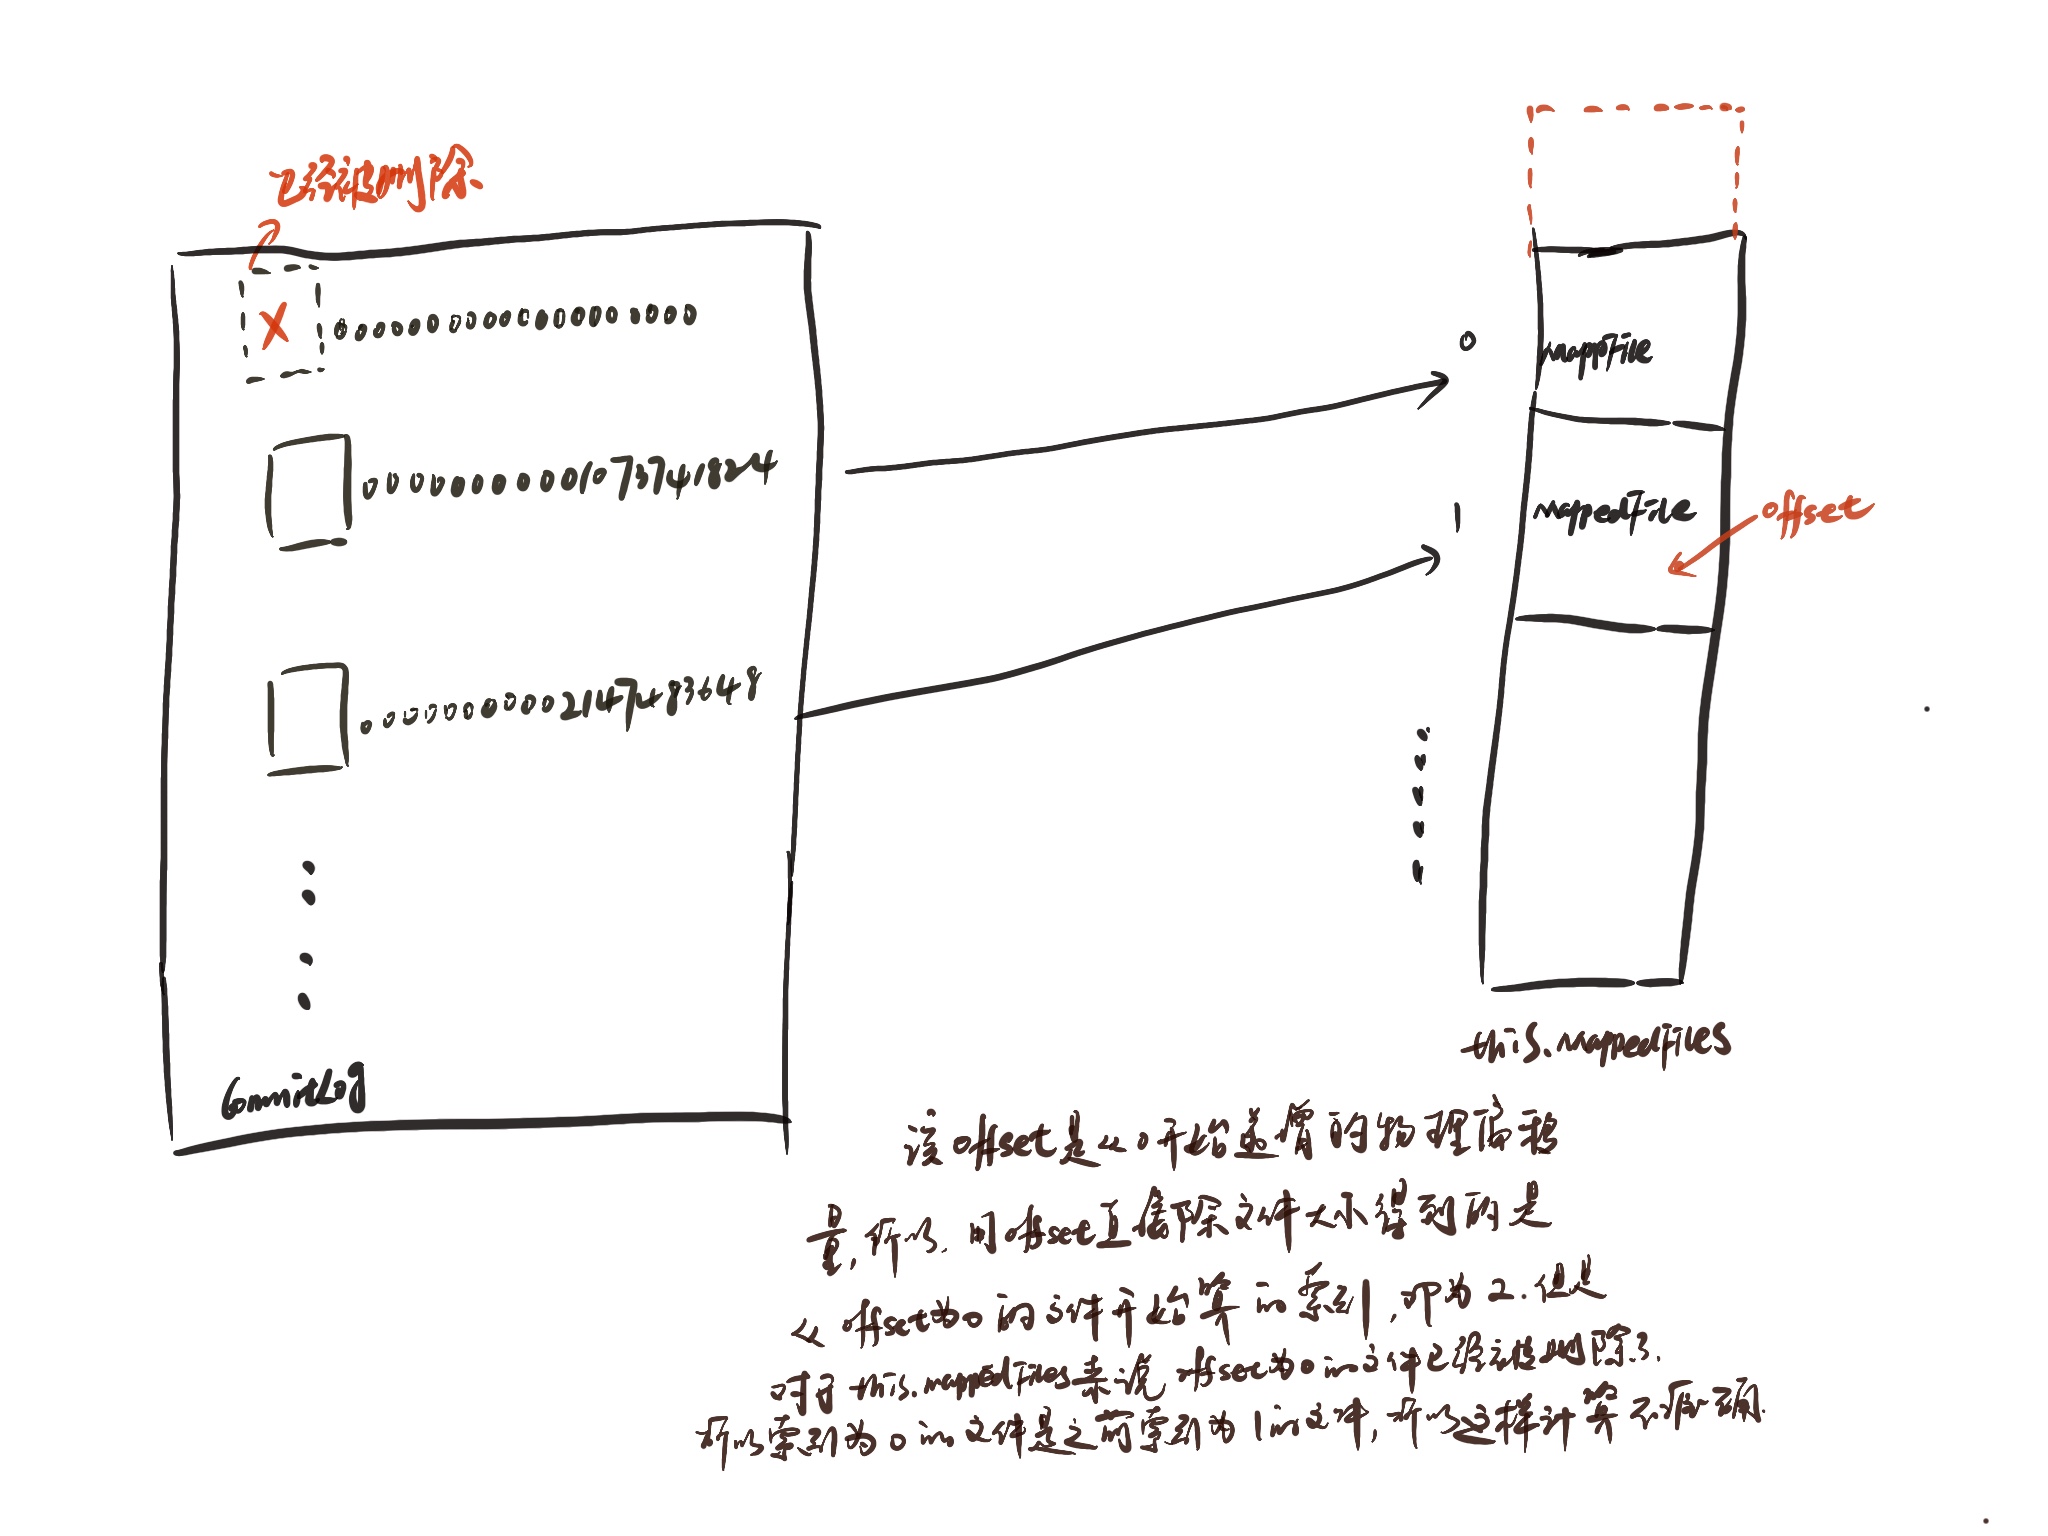 已经被删除
X
00000000000000000000
00000000001073741824
00000000002147483648
CommitLog
0
MappFile
1
MappedFile
offset
this.mappedFiles
该offset是从0开始递增的物理偏移
量,所以.用offset直接除文件大小得到的是
从offset为0的文件开始算的索引,即为2.但是
对于this.mappedFiles来说offset为0的文件已经被删除了.
所以索引为0的文件是之前索引为1的文件,所以这样计算不准确.